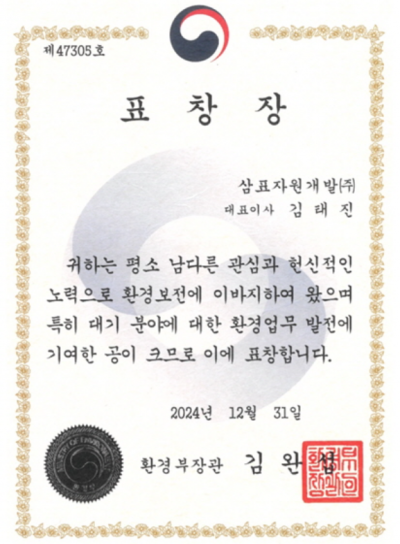 제47305호
표창장
삼표자원개발(주)
대표이사 김태진
귀하는 평소 남다른 관심과 헌신적인
노력으로 환경보전에 이바지하여 왔으며
특히 대기 분야에 대한 환경업무 발전에
기여한 공이 크므로 이에 표창합니다.
2024년 12월 31일
환경부장관 김완섭